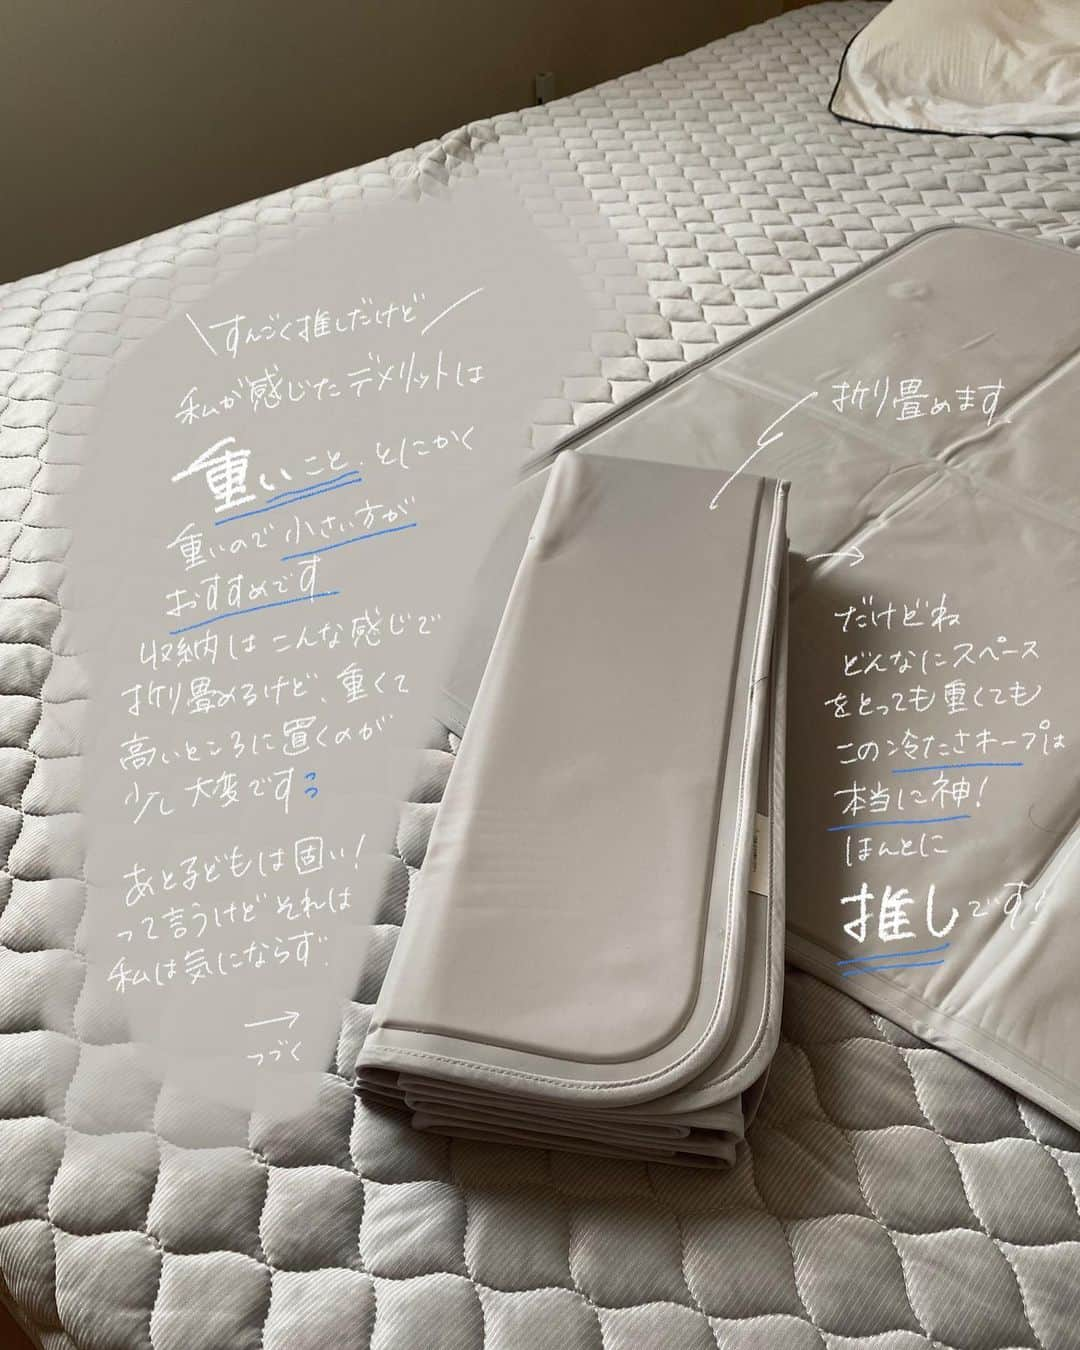 \すんごく推しだけど/
私が感じたデメリットは
重いこと、とにかく
重いので小さい方が
おすすめです
収納はこんな感じで
折り畳めるけど、重くて
高いところに置くのが
少し大変です
あと子どもは固い!
って言うけどそれは
私は気にならず.
→
つづく
折り畳めます
→
だけどね
どんなにスペース
をとっても重くても
この冷たさキープは
本当に神!
ほんとに
推しです!